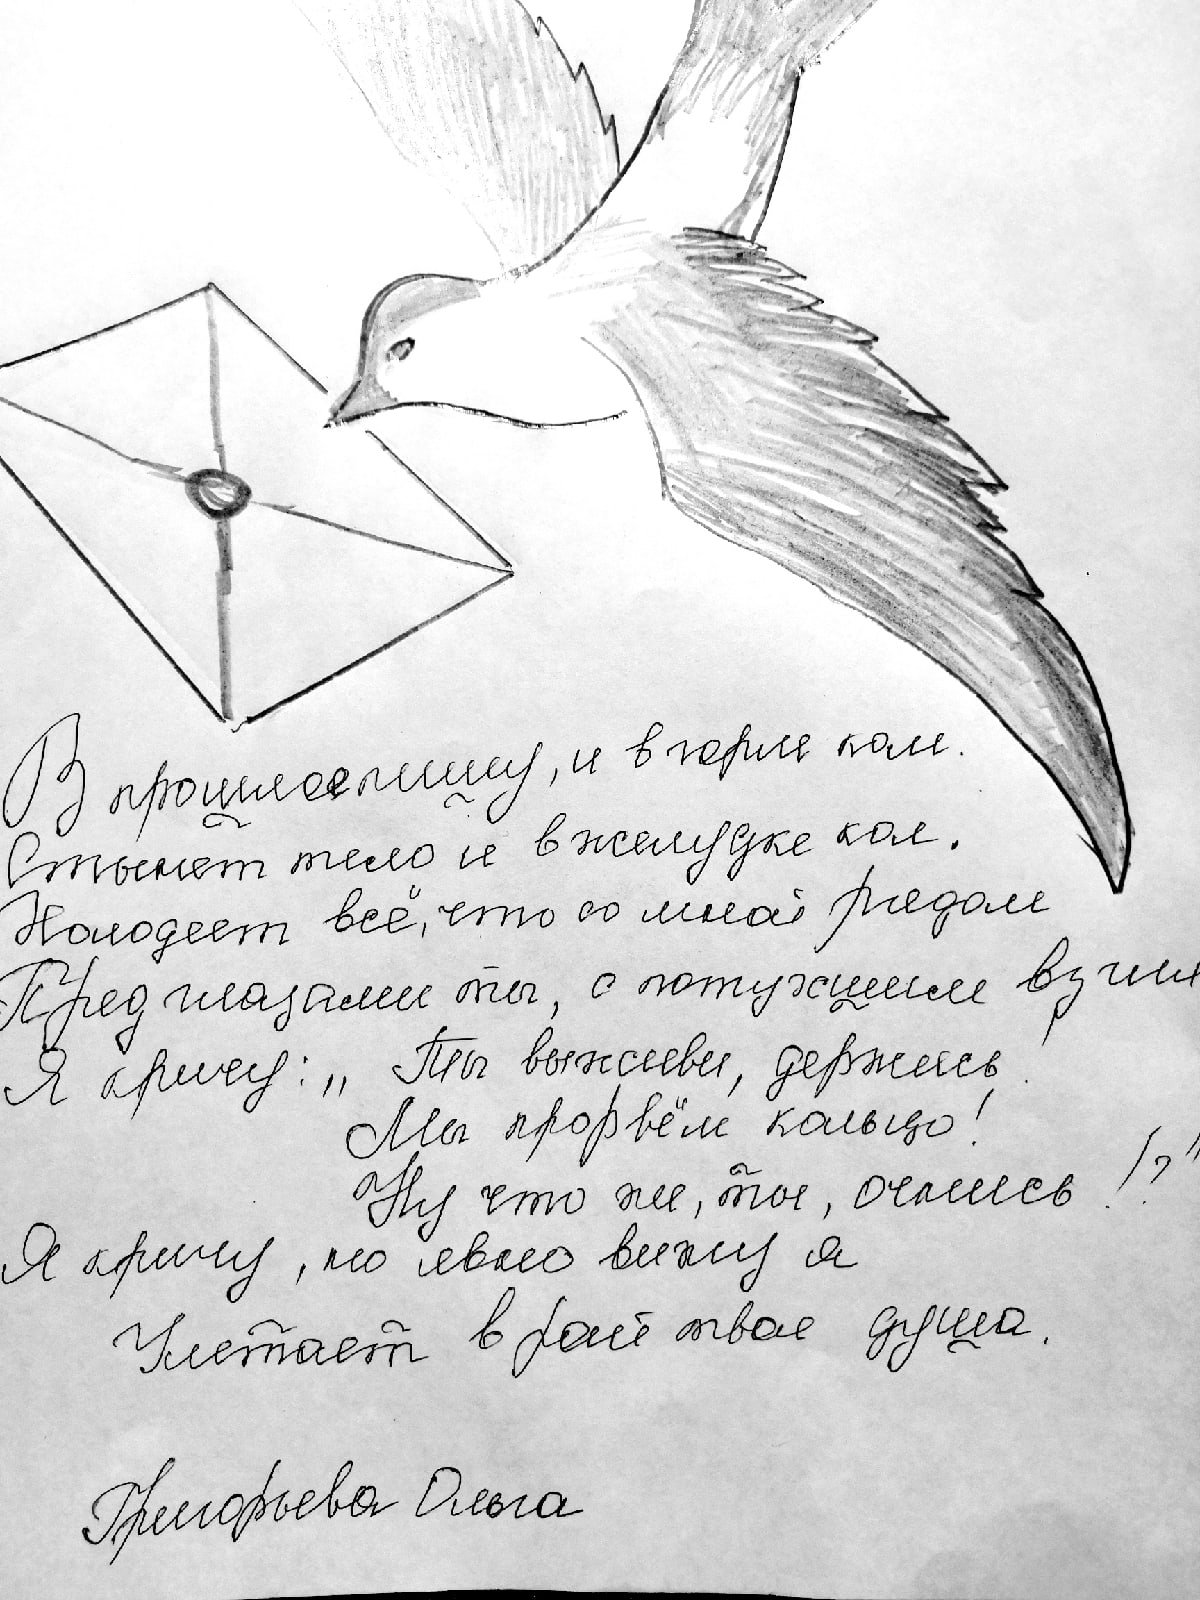 В прошлое пишу, и в горле ком.
Стынет тело и в желудке кол.
Холодеет всё, что со мной рядом
Пред глазами ты, с потухшим взгля
Я кричу: „ Ты выживи, держись!
Мы прорвём кольцо!
Ну что же, ты, очнись!?"
Я кричу, но явно вижу я
Улетает в рай твоя душа.
Григорьева Ольга